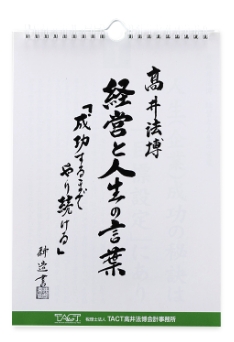 高井法博
経営と人生の言葉
「成功するまで
やり続ける」
TACT 税理士法人 TACT高井法博会計事務所